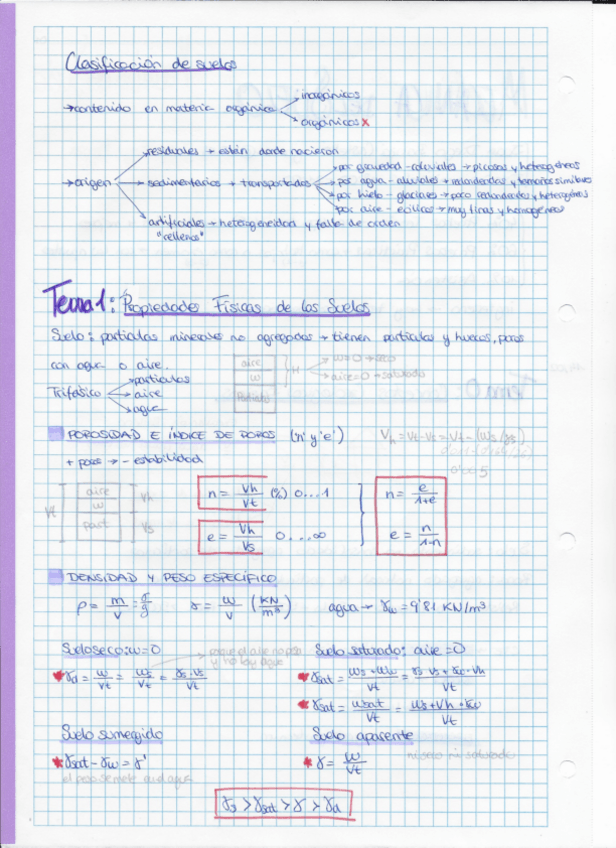 Clasificación de suelos
→ contenido en materia orgánica
inorgánicos
orgánicos x
→ origen
residuales → están donde nacieron
sedimentarios → transportados
por gravedad - coloviales → picosas y heterogéneos
por agua - aluviales → redondeadas y tamaños similares
por hielo - glaciares → poco redondeados y heterogéneos
por aire - eólicos → muy finas y homogéneos
artificiales → heterogeneidad y falta de orden
"rellenos"
Tema 1: Propiedades Físicas de los Suelos
Suelo: partículas minerales no agregadas → tienen partículas y huecos, poros
con agua o aire.
aire
w
Particula
H
w=0 → seco
aire=0 → saturado
Trifásico
partículas
aire
agua
POROSIDAD E ÍNDICE DE POROS (n' y 'e')
Vh = Vt-Vs = Vt - (Ws/γs)
+ poros → - estabilidad
Vt
aire
w
part
Vh
Vs
n = Vh/Vt (%) 0...1
e = Vh/Vs 0...∞
n = e/1+e
e = n/1-n
DENSIDAD Y PESO ESPECÍFICO
ρ = m/v = γ/g
γ = w/v (KN/m³)
agua → γw = 9'81 KN/m³
Suelo seco: w=0
porque el aire no pesa
y no hay agua
* γd = w/Vt = Ws/Vt = γs·Vs/Vt
Suelo saturado: aire = 0
* γsat = Ws+Ww/Vt = γs·Vs+γw·Vh/Vt
* γsat = Wsat/Vt = Ws+Vh·γw/Vt
Suelo sumergido
* γsat - γw = γ'
el peso se mete en el agua
Suelo aparente
* γ = W/Vt
ni seco ni saturado
γs > γsat > γ > γd